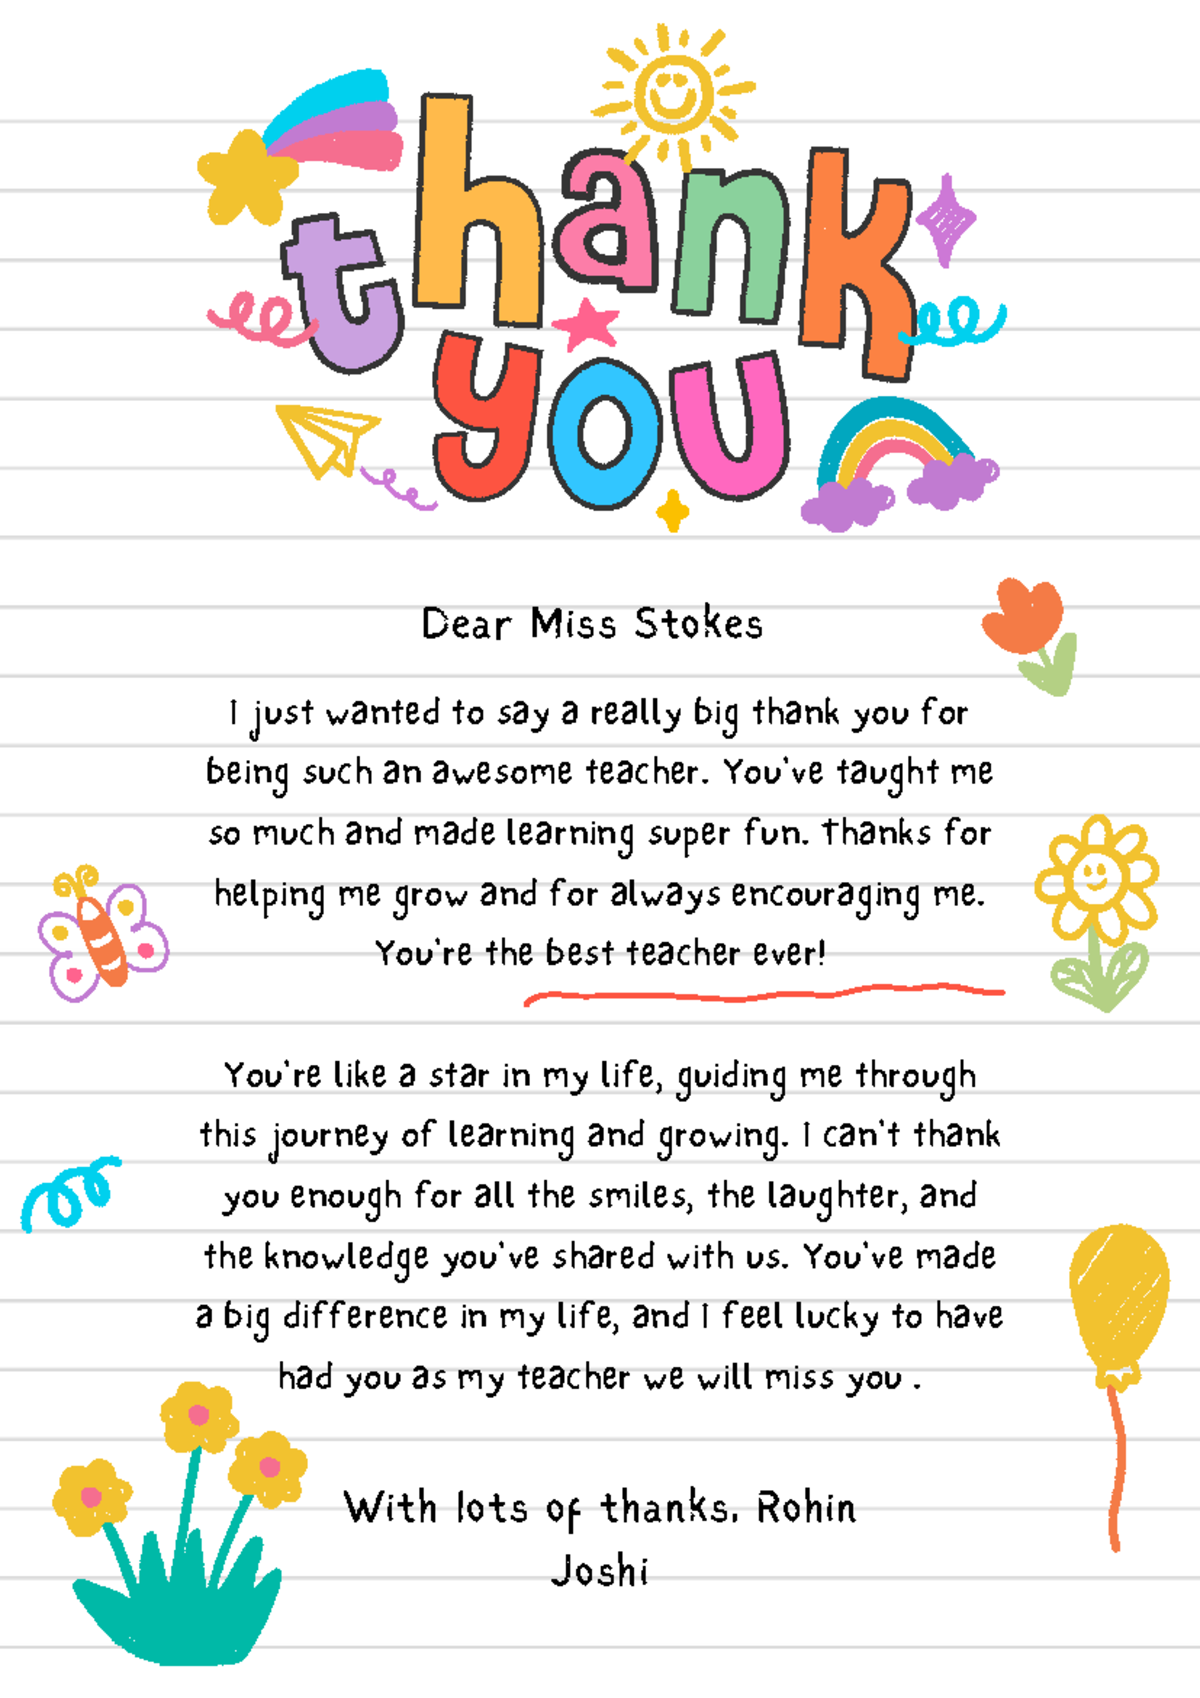 thank
you
Dear Miss Stokes
I just wanted to say a really big thank you for
being such an awesome teacher. You've taught me
so much and made learning super fun. Thanks for
helping me grow and for always encouraging me.
You're the best teacher ever!
You're like a star in my life, guiding me through
this journey of learning and growing. I can't thank
you enough for all the smiles, the laughter, and
the knowledge you've shared with us. You've made
a big difference in my life, and I feel lucky to have
had you as my teacher we will miss you .
With lots of thanks. Rohin
Joshi